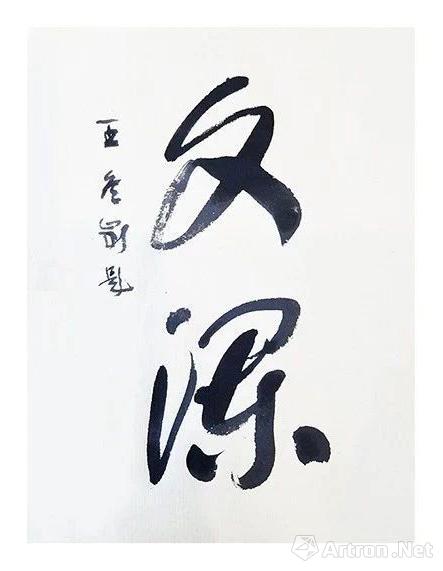 文澜
王冬龄题
Artron.Net